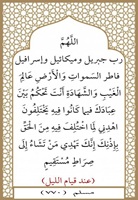 اللَّهُمَّ
رب جبريل وميكائيل وإسرافيل
فاطر السموات والأرض عَالِمَ
الْغَيْبِ وَالشَّهَادَةِ أَنْتَ تَحْكُمُ بَيْنَ
عِبَادَكَ فِيمَا كَانُوا فِيهِ يَخْتَلِفُونَ
اهْدِنِي لِمَا اخْتُلِفَ فِيهِ مِنَ الْحَقِّ
بِإِذْنِكَ إِنَّكَ تَهْدِي مَنْ تَشَاءُ إِلَى
صِرَاطٍ مُسْتَقِيمٍ
(عند قيام الليل)
مسلم (٧٧٠)